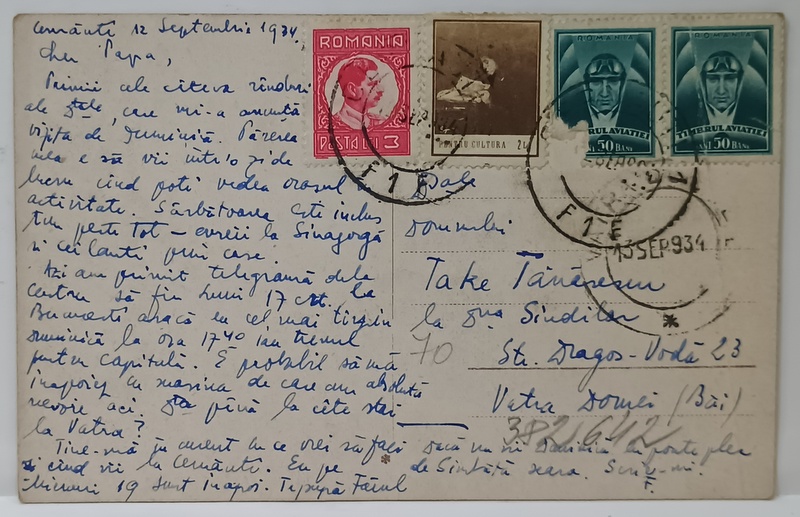 Cernăuți 12 Septembrie 1934.
Cher Papa,
Primii ale câteva rânduri
ale D-tale, care mi-a anunță
vizita de Duminică. Părerea
mea e să vii într'o zi de
lucru când poți vedea orașul în
activitate. Sărbătoarea este închis
tim peste tot – evreii la Sinagogă
și ceilanți prin case.
Azi am primit telegramă dela
Centru să fiu Luni 17 crt. la
București așacă cel mai târziu
Duminică la ora 17 40 iau trenul
pentru capitală. E probabil să mă
înapoiez cu mașina de care am absolută
nevoie aci. D-ta până la cîte stai
la Vatra?
Tine-mă în curent cu ce vrei să faci
și cînd vii la Cernăuți. Eu pe
Miercuri 19 sunt înapoi. Te pupă Fănel
* Dacă nu vii Duminică pot pleca
de Sîmbătă seara. Scrie-mi.
F.
ROMANIA
POSTA LEI 3
PENTRU CULTURA 2L
ROMANIA
TIMBRUL AVIATIEI
BANI 50 BANI
ROMANIA
TIMBRUL AVIATIEI
BANI 50 BANI
F 1 E
F 1 E
13 SEP 934
Dsale
Domnului
Take Tănăsescu
la D-na Sindilar
Str. Dragoș-Vodă 23
Vatra Dornei (Băi)
70
382/642